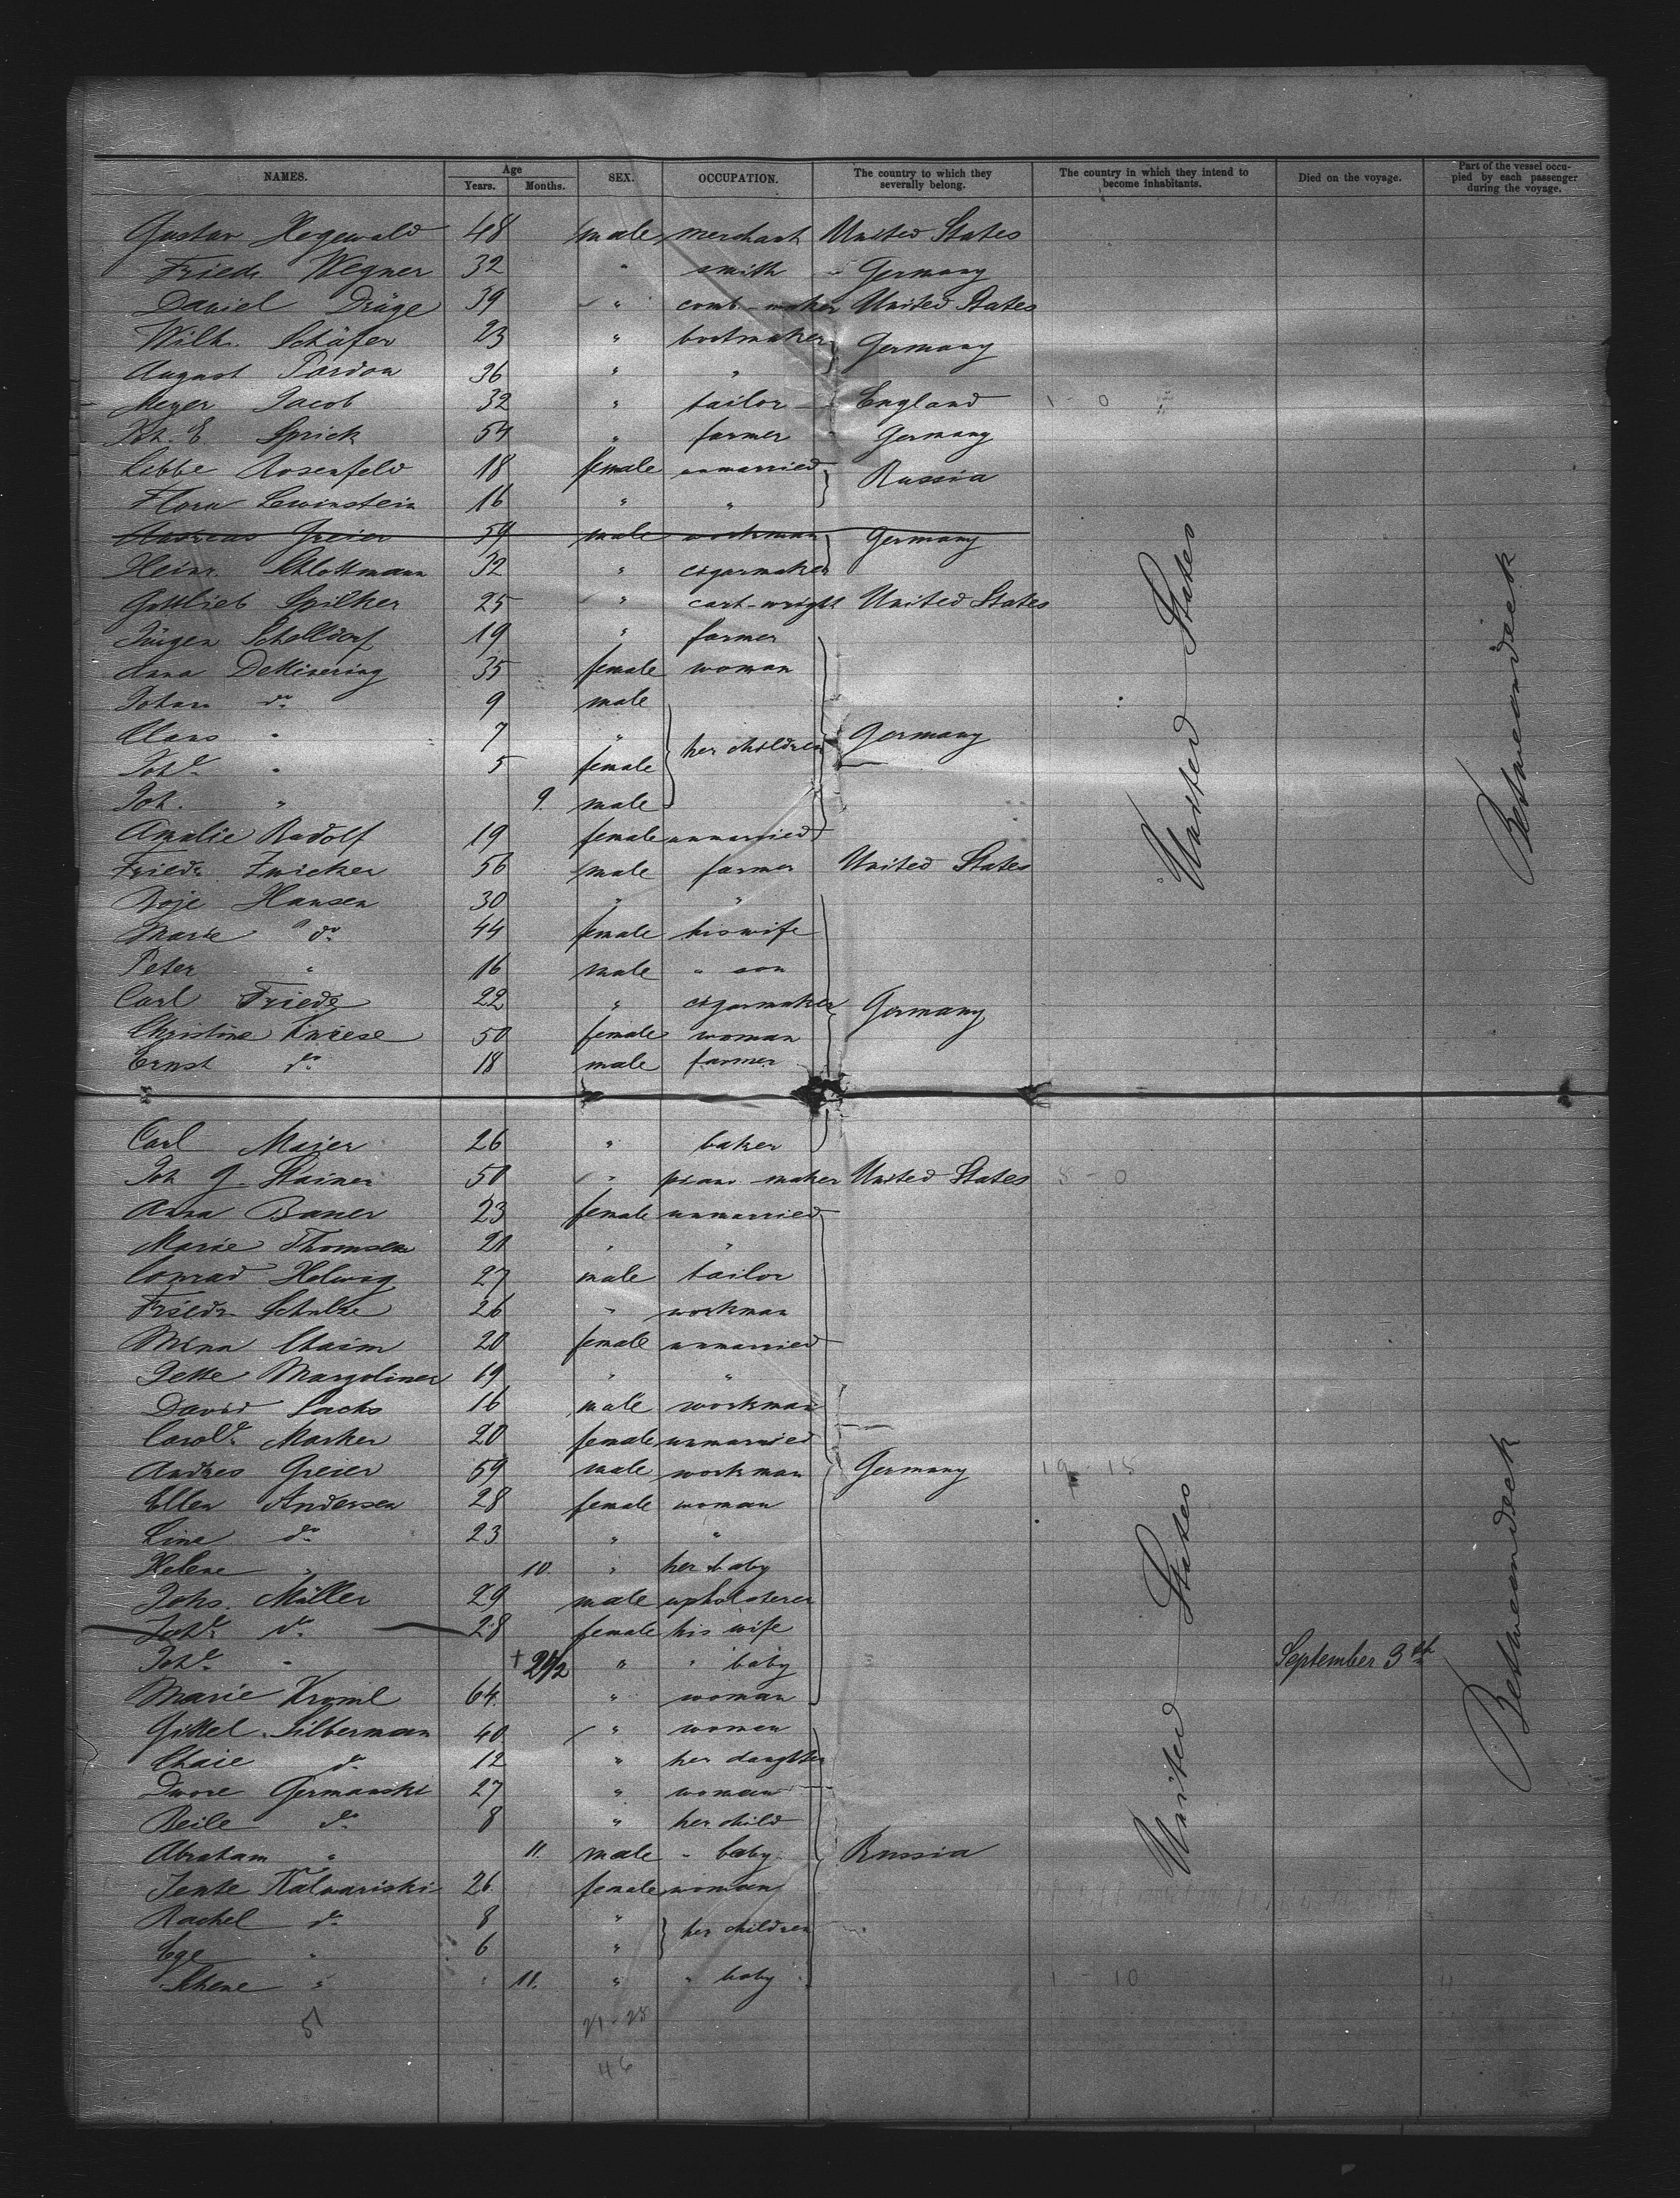 NAMES. Age Years. Months. SEX. OCCUPATION. The country to which they severally belong. The country in which they intend to become inhabitants. Died on the voyage. Part of the vessel occupied by each passenger during the voyage.
Gustav Hegewald 48 male merchant United States
Friedr. Wegner 32 " smith Germany
Daniel Dröge 39 " comb-maker United States
Wilh. Schäfer 23 " bootmaker Germany
August Pardon 36 " "
Meyer Jacob 32 " tailor England 1 - 0
Joh. E Sprick 54 " farmer Germany
Libbe Rosenfeld 18 female unmarried Russia
Flora Lewinstein 16 " "
Andreas Greier 59 male workman Germany
Heinr. Schlottmann 32 " cigarmaker
Gottlieb Spilker 25 " cart-wright United States
Jürgen Schelldorf 19 " farmer
Anna Dettmering 35 female woman
Johann do 9 male
Claus " 7 " her children Germany
Johe " 5 female
Joh. " 9. male
Amalie Radolf 19 female unmarried
Friedr. Zwicker 56 male farmer United States
Boje Hansen 30 " "
Marie do 44 female his wife
Peter " 16 male " son
Carl Friede 22 " cigarmaker Germany
Christine Kniese 50 female woman
Ernst do 18 male farmer
United States
Betweendeck
Carl Majer 26 " baker
Joh G. Stainer 50 " piano-maker United States 5 - 0
Anna Bauer 23 female unmarried
Marie Thomsen 21 " "
Conrad Helwig 27 male tailor
Friedr Schulze 26 " workman
Minna Chaim 20 female unmarried
Jette Margoliner 19 " "
David Sachs 16 male workman
Carole Marker 20 female unmarried
Andres Greier 59 male workman Germany 19 - 15
Ellen Andersen 28 female woman
Line do 23 " "
Helene " 10. " her baby
Johs. Müller 29 male upholsterer
Johe do 28 female his wife
Johe " + 2 1/2 " " baby September 3th
Marie Kroml 64. " woman
Gittel Silberman 40 " woman
Chaie do 12 " her daughter
Dwore Germanski 27 " woman
Beile do 8 " her child
Abraham " 11. male " baby Russia
Jente Kalwariski 26 female woman
Rachel do 8 " her children
Ege " 6 "
Schene " " 11. " " baby 1 - 10
United States
Betweendeck
51 21-25
46